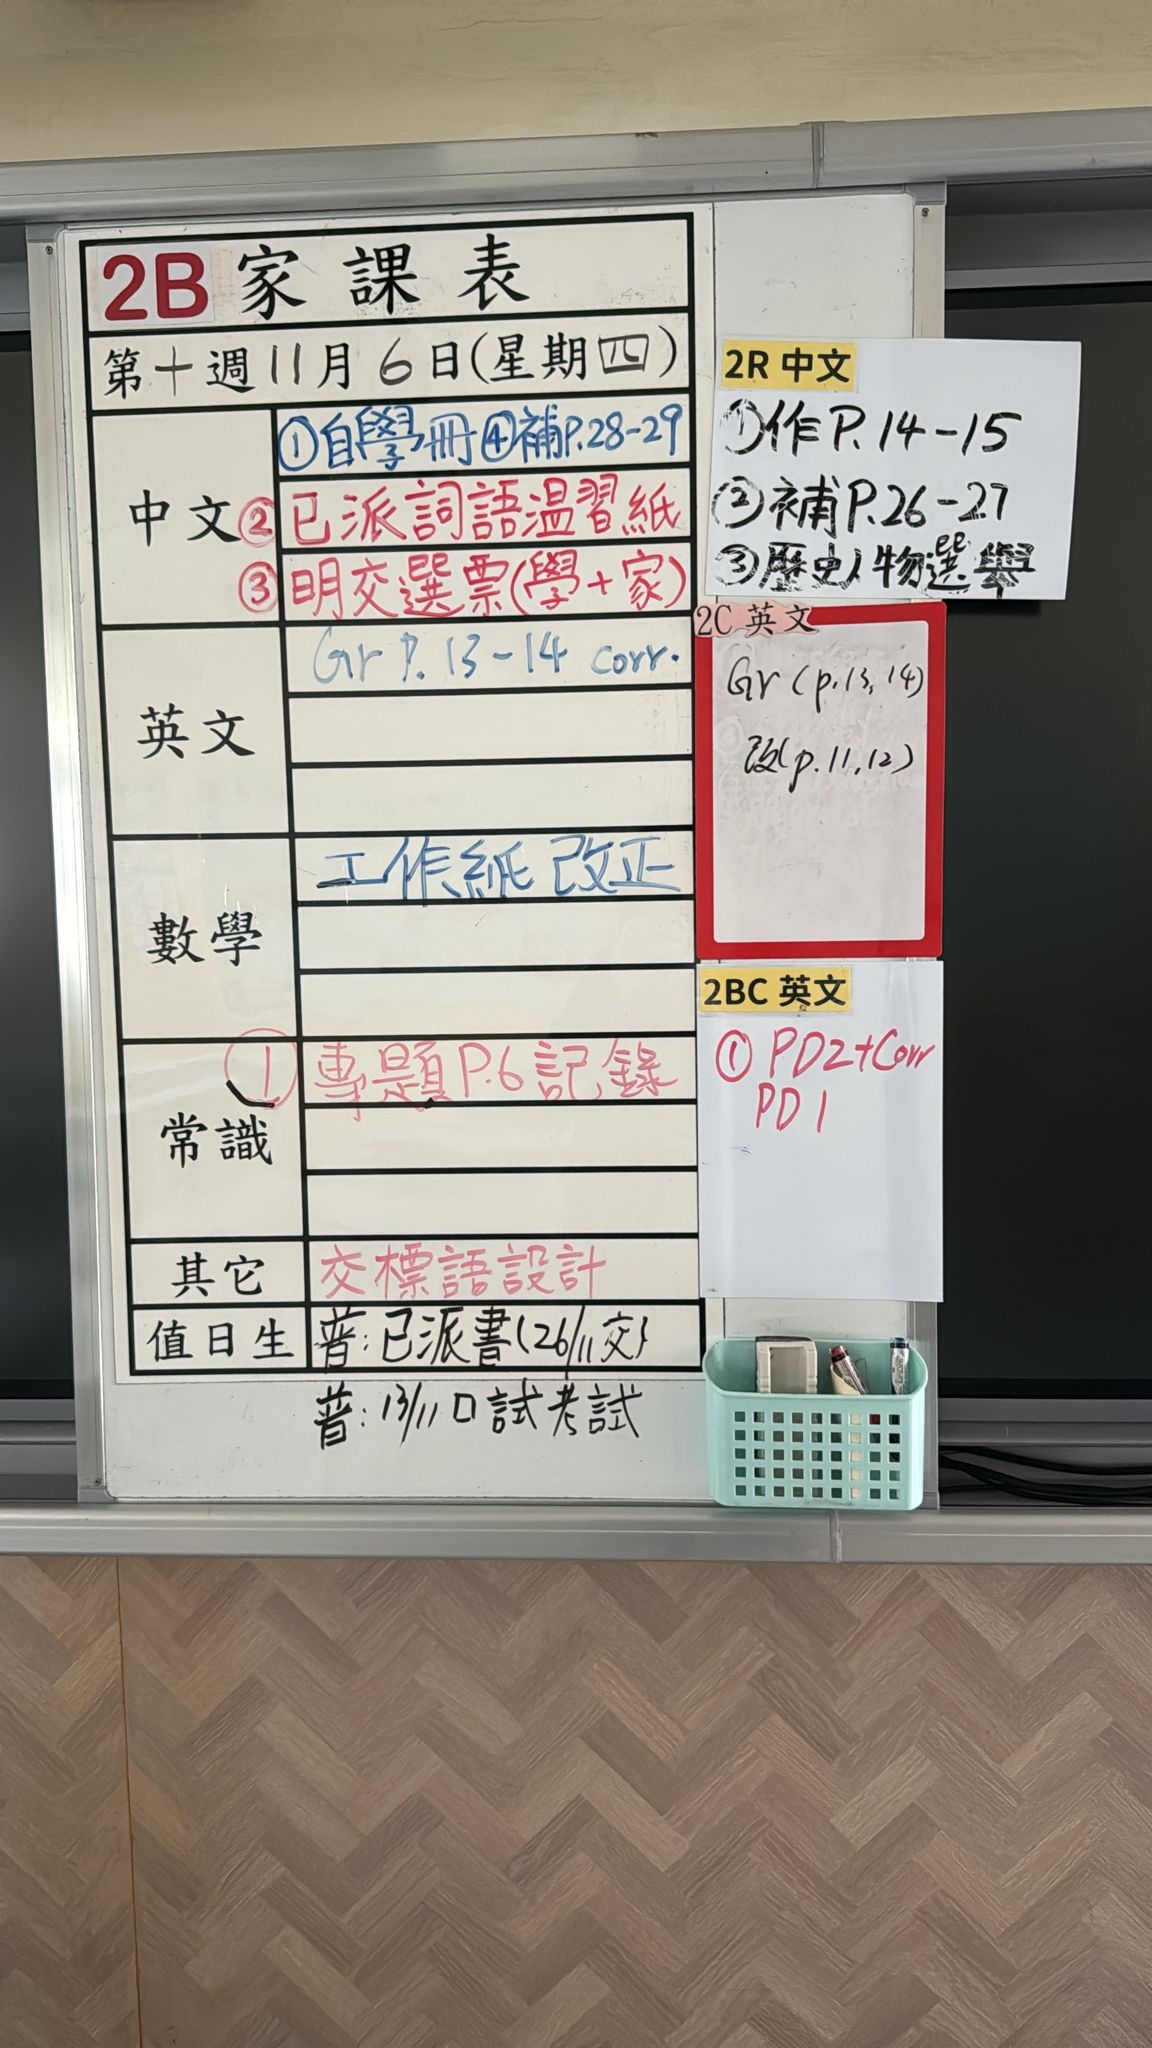 2B 家課表
第十週11月6日(星期四)
中文
①自學冊④補P.28-29
②已派詞語温習紙
③明交選票(學+家)
英文
Gr P. 13-14 corr.
數學
工作紙 改正
常識
①專題P.6記錄
其它
交標語設計
值日生
普:已派書(26/11交)
普:13/11口試考試
2R 中文
①作P.14-15
②補P.26-27
③歷史人物選舉
2C 英文
Gr (p.13,14)
改(p.11,12)
2BC 英文
① PD2+Corr
PD1